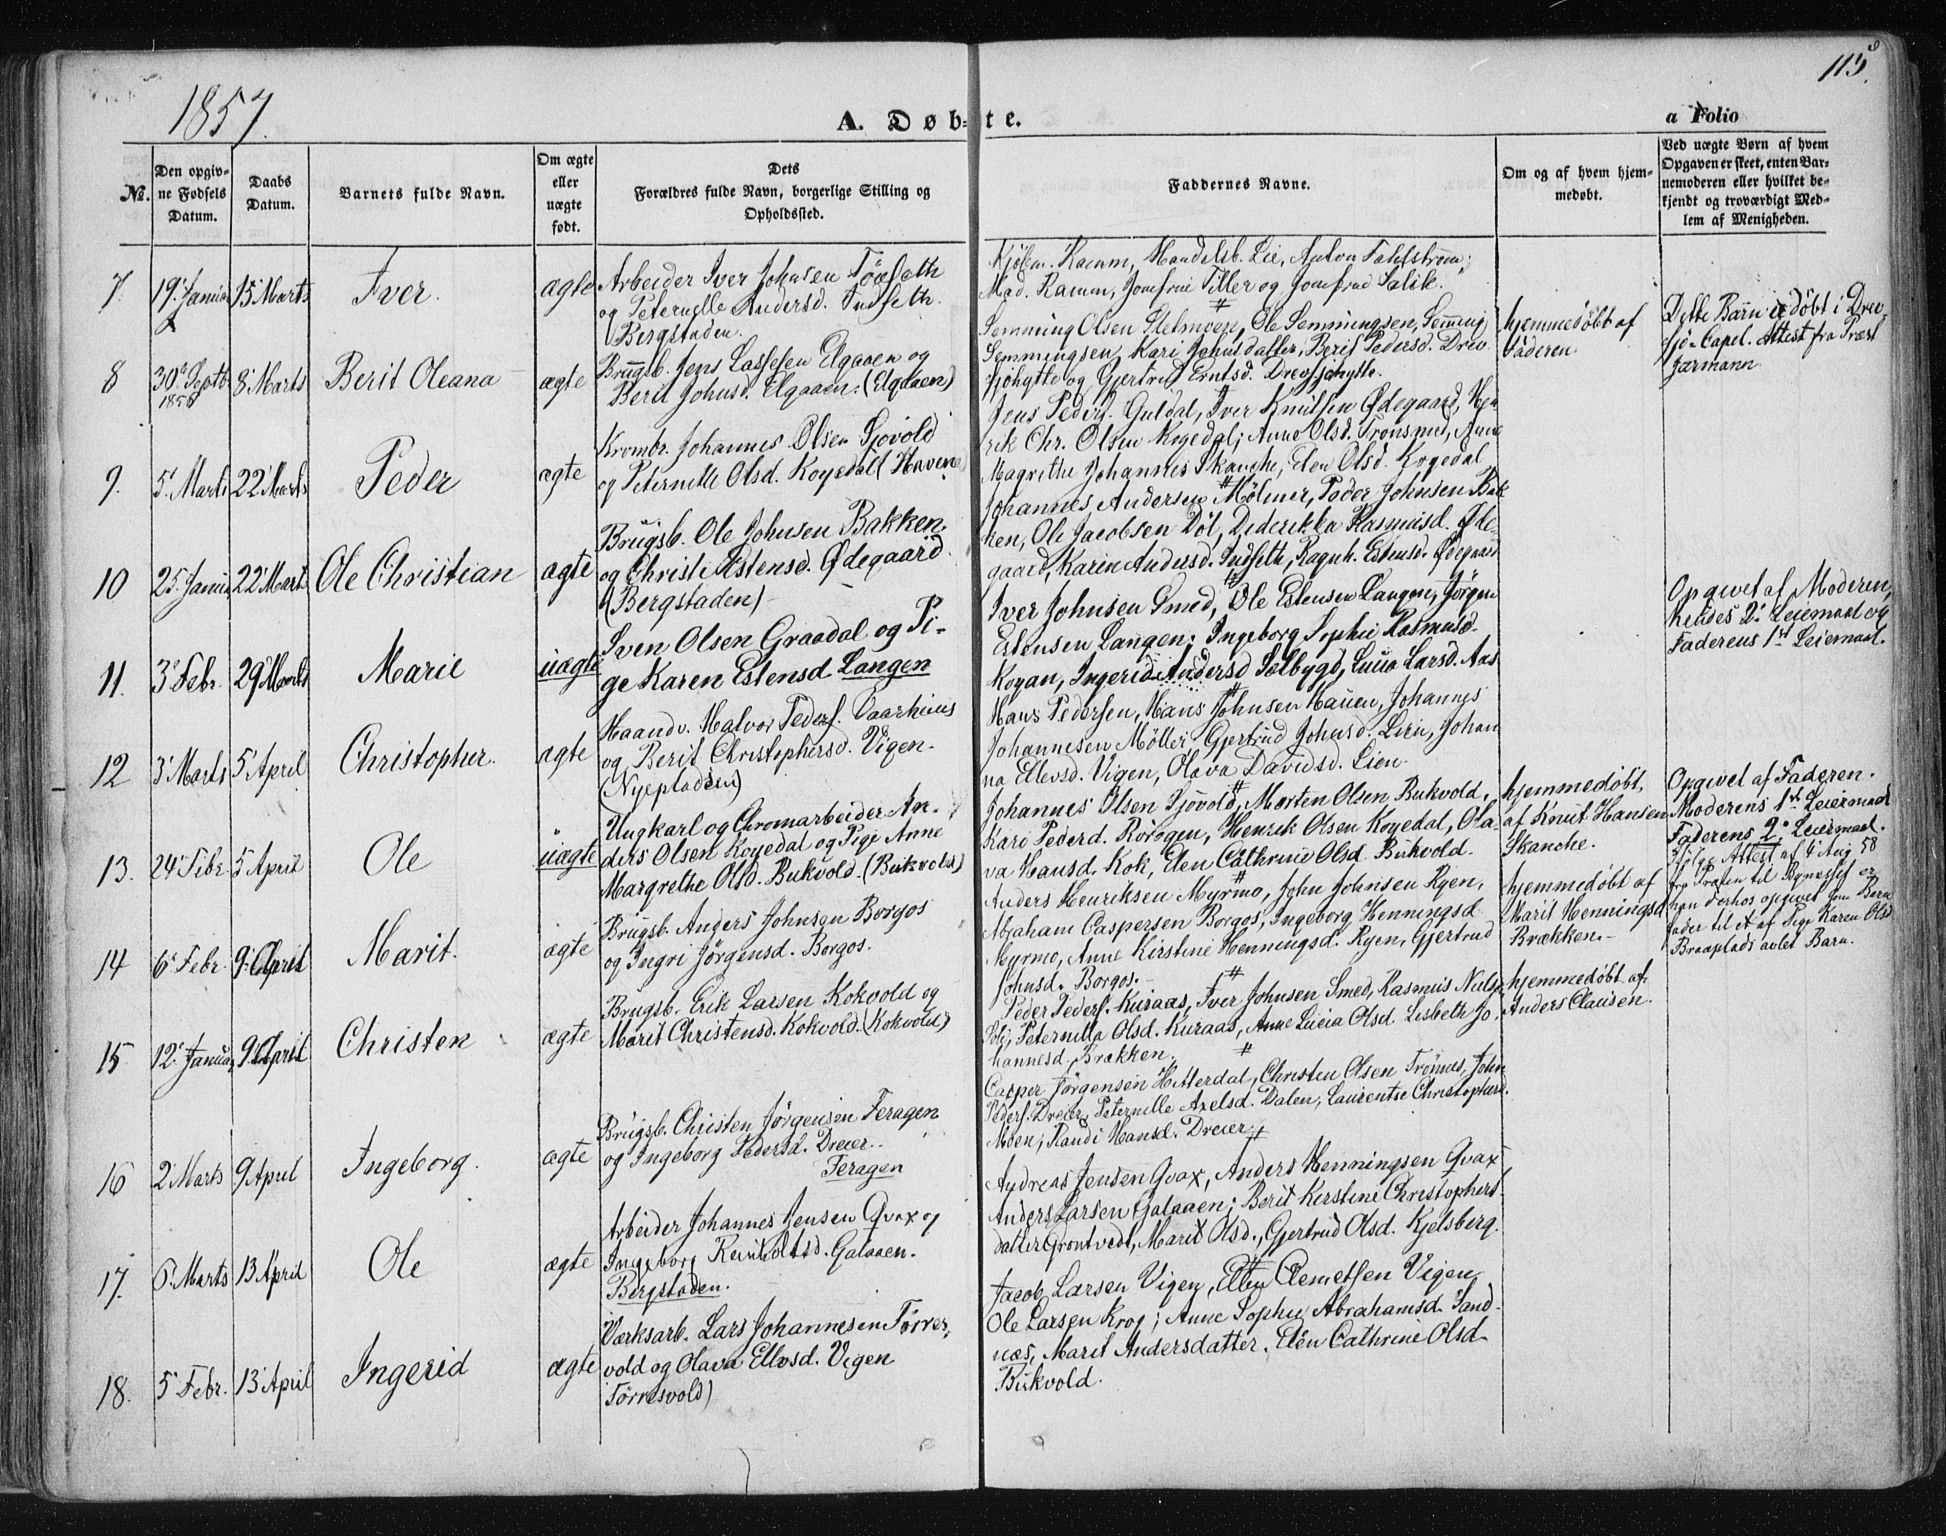 1857.
115.
A. Døbte.
a Folio
№.
Den opgivne Fødsels Datum.
Daabs Datum.
Barnets fulde Navn.
Om ægte eller uægte født.
Dets Forældres fulde Navn, borgerlige Stilling og Opholdssted.
Faddernes Navne.
Om og af hvem hjemmedøbt.
Ved uægte Børn af hvem Opgaven er skeet, enten Barnemoderen eller hvilket bekjendt og troværdigt Medlem af Menigheden.
7. 19 Januar 15 Marts Iver. ægte
Arbeider Iver Johnsen
og Peternelle Andersd. Indseth.
(Bergstaden.
Kjøbm. Ramm, Handelsb. Lie, Anton Fahlstrøm;
Mad. Ramm, Jomfrue Tiller og Jomfrue Salik.
8 30 Septb. 1856 8 Marts Berit Oleana ægte
Brugsb. Jens Lassesen Elgaaen og
Berit Johnsd. Elgaaen. (Elgaaen)
Semming Olsen Stelmoere, Ole Semmingsen, Semming
Semmingsen, Kari Johnsdatter, Berit Pedersd. Drev
sjøhytte og Gjertrud Erntsd. Drevsjøhytte.
hjemmedøbt af
Faderen
Dette Barn er døbt i Drev
sjø-Capel. Attest fra Præst
Jarmann
9. 5 Marts 22 Marts Peder ægte
Krombr. Johannes Olsen Sjøvold
og Peternelle Olsd. Koyedal (Haven)
Jens Peders. Guldal, Iver Knutsen Ødegaard, Hen
rik Chr. Olsen Kogedal; Anne Olsd. Trønsmed, Anne
Magrethe Johannesd. Skanche, Elen Olsd. Kogedal
10 25 Januar 22 Marts Ole Christian ægte
Brugsb. Ole Johnsen Bakken.
og Christi Estensd. Ødegaard.
(Bergstaden)
Johannes Andersen Mølmer, Peder Johnsen Bak
ken, Ole Jacobsen Døl, Dederikka Rasmusd. Øde-
gaard, Karen Andersd. Indseth, Ragnh. Estensd. Ødegaard
11. 3 Febr. 29 Marts Marie uægte
Sven Olsen Graadal og Pi-
ge Karen Estensd Langen
Iver Johnsen Smed, Ole Estensen Langen, Jørgen
Estensen Langen; Ingeborg Sophie Rasmusd.
Koyan, Ingerid Andersd Selbygd, Lucia Larsd. Aas
Opgivet af Moderen,
Hendes 2. Leiermaal og
Faderens 1ste Leiermaal.
12 3 Marts 5 April Christopher. ægte
Haandv. Halvor Peders. Aarhuus
og Berit Christophersd. Vigen.
(Nyepladsen)
Hans Pedersen, Hans Johnsen Hauen, Johannes
Johannesen Møller, Gjertrud Johnsd. Lien, Johan
na Ellevsd. Vigen, Olava Davidsd. Lien
13. 24 Febr. 5 April Ole uægte
Ungkarl og Chromarbeider An-
ders Olsen Koyedal og Pige Anne
Margrethe Olsd. Bukvold. (Bukvold)
Johannes Olsen Sjøvold, Morten Olsen Bukvold.
Kari Pederd. Rørogen, Henrik Olsen Koyedal, Ola-
va Hansd. Kok, Elen Cathrine Olsd. Bukvold.
hjemmedøbt,
af Knut Hansen
Skanche.
Opgivet af Faderen.
Moderens 1ste Leiermaal
Faderens 2. Leiermaal.
Ifølge Attest af 4 Aug 58
fra Præsten til Bynesset er
han forhos opgivet som Barne
fader til et af Pige Karen Olsd
Braaplads avlet Barn.
14 6 Febr. 9 April Marit. ægte
Brugsb. Anders Johnsen Borgos
og Ingri Jørgensd. Borgos.
Anders Henriksen Myrmo, John Johnsen Ryen,
Abraham Caspersen Borgos, Ingeborg Henningsd
Myrmo, Anne Kirstine Henningsd. Ryen, Gjertrud
Johnsd. Borgos.
hjemmedøbt af
Marit Henningsd
Brækken.
15 12 Januar 9 April Christen ægte
Brugsb. Erik Larsen Kokvold og
Marit Christensd. Kokvold. (Kokvold)
Peder Peders. Kuraas, Iver Johnsen Smed, Rasmus Niels.
Poli, Peternella Olsd. Kuraas, Anne Lucia Olsd. Lisbeth Jo
hannesd. Brækken.
hjemmedøbt af
Anders Clausen.
16 2 Marts 9 April Ingeborg. ægte
Brugsb. Christen Jørgensen Feragen
og Ingeborg Pedersd. Dreier.
Feragen
Casper Jørgensen Hitterdal, Christen Olsen Trønnes, John
Peders. Dreier, Peternille Axelsd. Dalen, Laurentse Christophersd.
Moen, Randi Hansd. Dreier
17. 6 Marts 13 April Ole ægte
Arbeider Johannes Jensen Qvax og
Ingeborg Reinholtsd. Galaaen.
Bergstaden.
Andreas Jensen Qvax, Anders Henningsen Qvax
Anders Larsen Galaaen; Berit Kirstine Christophers
datter Grontvedt, Marit Olsd., Gjertrud Olsd. Kjelsberg.
18. 5 Febr. 13 April Ingerid ægte
Værksarb. Lars Johannesen Tørres
vold og Olava Ellevsd. Vigen
Tørresvold)
Jacob Larsen Vigen, Ellev Clemetsen Vigen
Ole Larsen Krog; Anne Sophie Abrahamsd. Sand-
næs, Marit Andersdatter. Elen Cathrine Olsd
Bukvold.